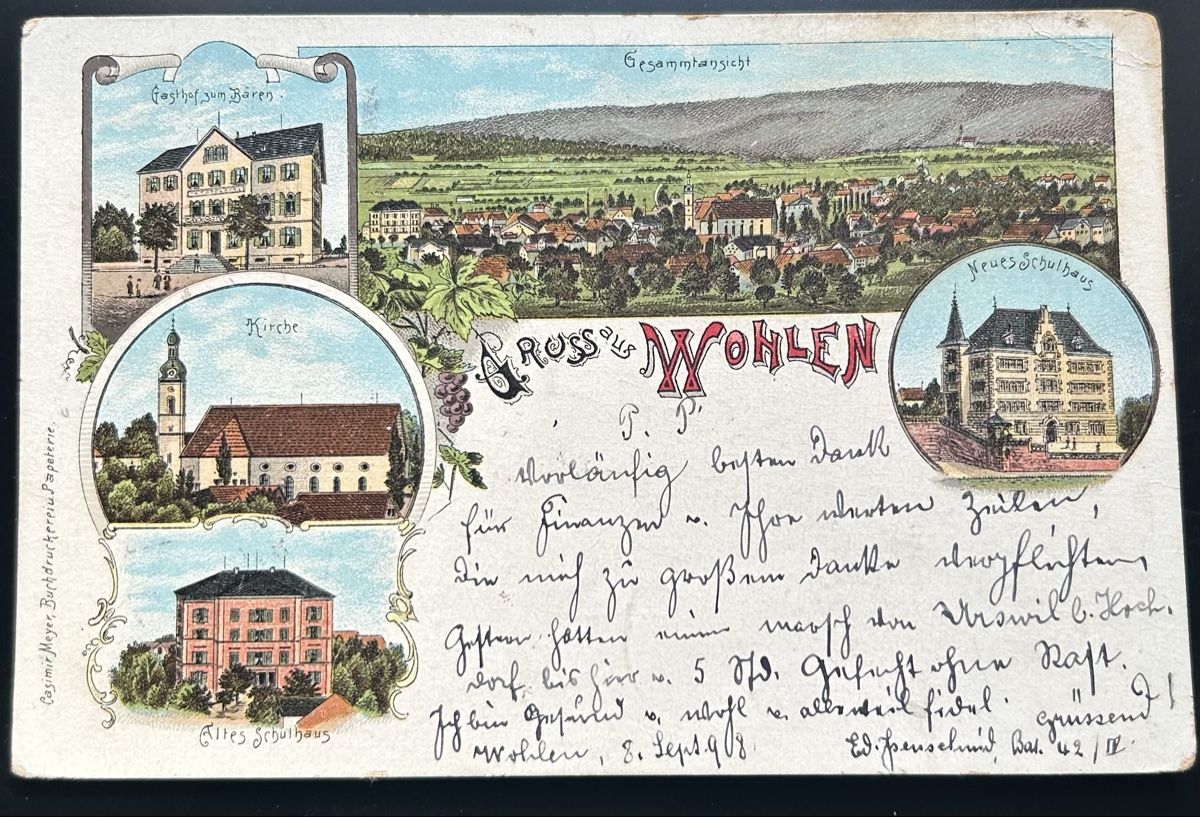 Gasthof zum Bären.
Gesammtansicht
Neues Schulhaus
Kirche
Gruss aus Wohlen
Altes Schulhaus
Casimir Meyer, Buchdruckerei u. Papeterie.
P. P.
Vorläufig besten Dank
für Finanzen u. Ihre werten Zeilen,
die mich zu großem Danke verpflichten,
Gestern hatten einen marsch von Urswil b. Hoch-
dorf bis hier u. 5 Std. Gefecht ohne Rast.
Ich bin Gesund u. wohl u. alleweil fidel. grüssend
Wohlen, 8. Sept. 98. Ed. Isenschmid, Bat. 42/IV.